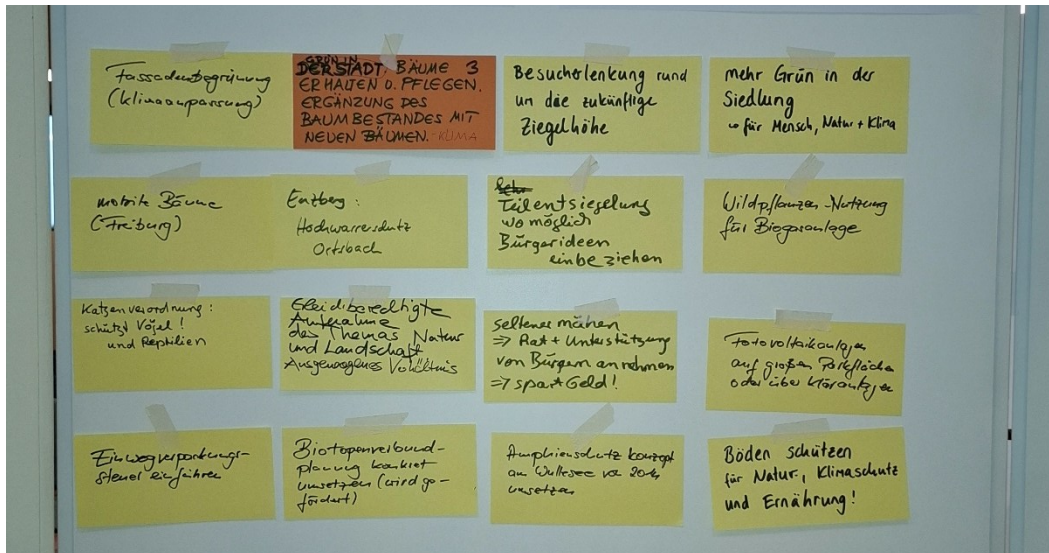 Fassadenbegrünung
(Klimaanpassung)
GRÜN IN
DER STADT, BÄUME 3
ERHALTEN U. PFLEGEN.
ERGÄNZUNG DES
BAUMBESTANDES MIT
NEUEN BÄUMEN. -KLIMA
Besucherlenkung rund
um die zukünftige
Ziegelhöhe
mehr Grün in der
Siedlung
für Mensch, Natur + Klima
mobile Bäume
(Freiburg)
Enzberg:
Hochwasserschutz
Ortsbach
Teilentsiegelung
wo möglich
Bürgerideen
einbeziehen
Wildpflanzen-Nutzung
für Biogasanlage
Katzenverordnung:
schützt Vögel!
und Reptilien
Gleichberechtigte
Aufnahme
des Themas Natur
und Landschaft
Ausgewogenes Verhältnis
seltener mähen
=> Rat + Unterstützung
von Bürgern annehmen
=> spart Geld!
Fotovoltaikanlagen
auf großen Parkflächen
oder über Kläranlagen
Einwegverpackungs-
steuer einführen
Biotopenverbund-
planung konkret
umsetzen (wird ge-
fördert)
Amphienschutzkonzept
am
umsetzen
Böden schützen
für Natur, Klimaschutz
und Ernährung!